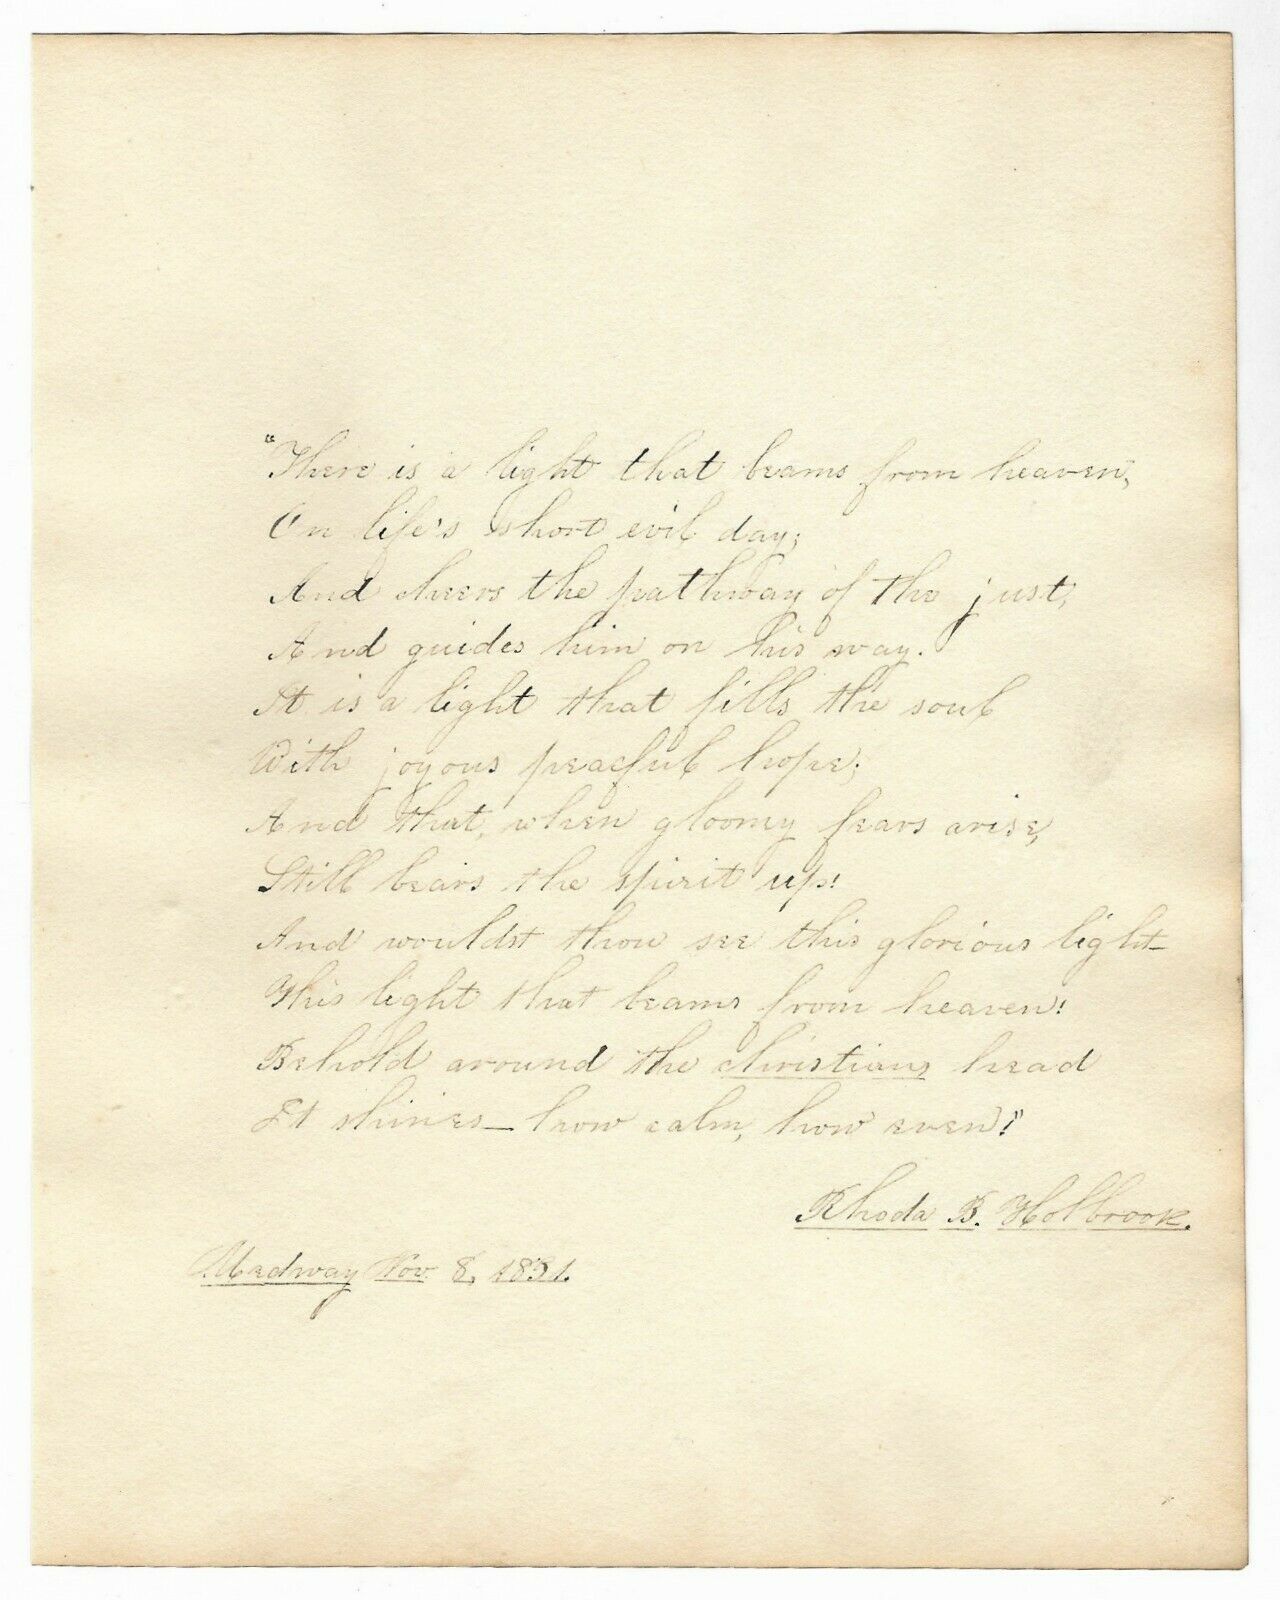 "There is a light that beams from heaven,
On life's short evil day;
And cheers the pathway of the just,
And guides him on his way.
It is a light that fills the soul
With joyous peaceful hope;
And that, when gloomy fears arise,
Still bears the spirit up!
And wouldst thou see this glorious light—
This light that beams from heaven!
Behold around the christians head
It shines— how calm, how even!"
Rhoda B. Holbrook.
Medway Nov. 8, 1831.